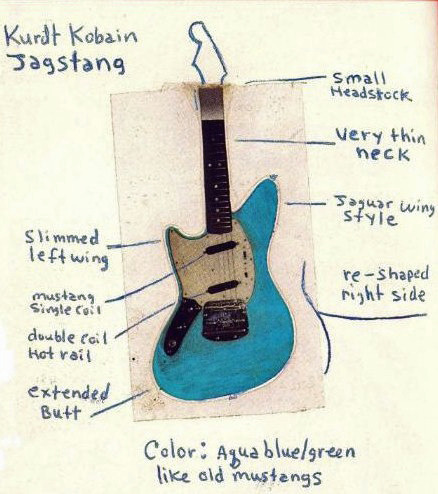 Kurdt Kobain
Jagstang
Small
Headstock
Very thin
neck
Jaguar wing
Style
re-shaped
right side
Slimmed
left wing
mustang
Single coil
double coil
Hot rail
extended
Butt
Color: Aqua blue/green
like old mustangs